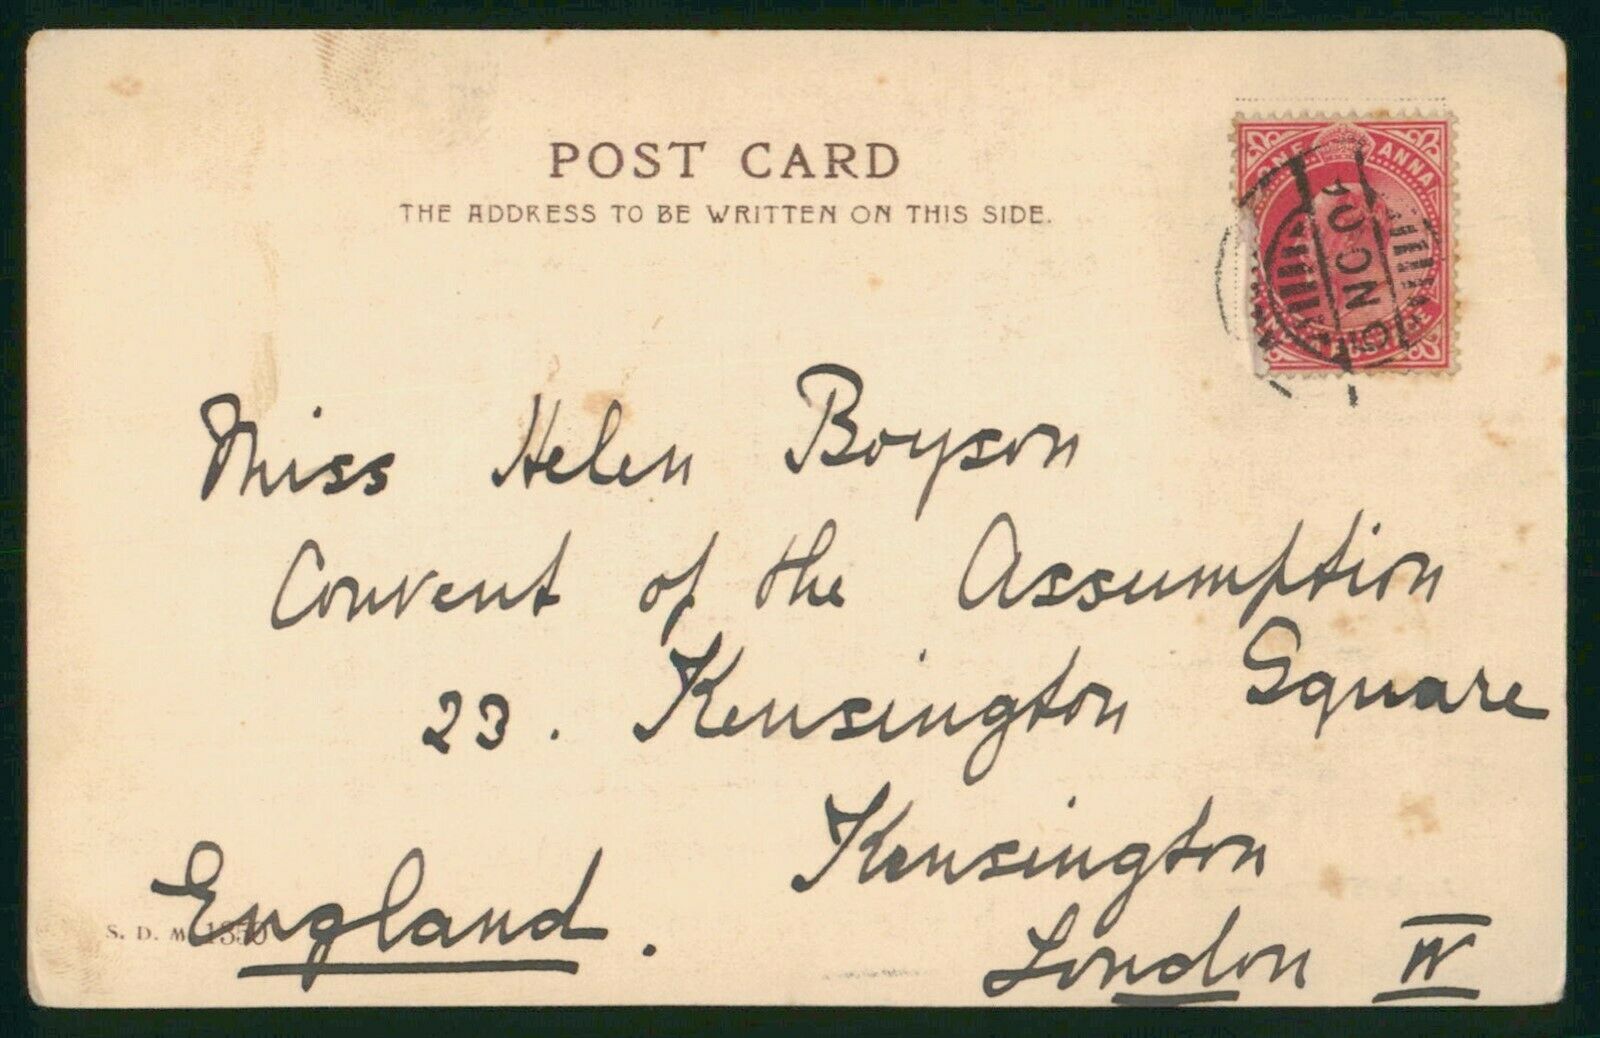 POST CARD
THE ADDRESS TO BE WRITTEN ON THIS SIDE.
ANNA
Miss Helen Boyson
Convent of the Assumption
23. Kensington Square
Kensington
London W
England.
S. D. M.